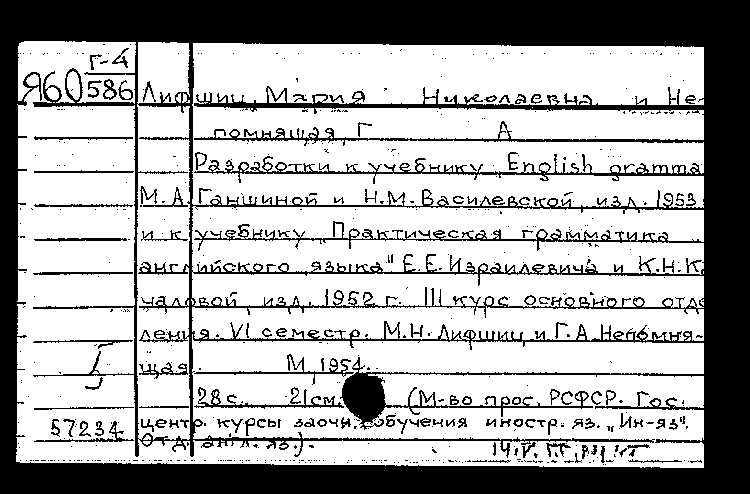 Г-4
Я60 586
Лифшиц, Мария Николаевна и Не-
помнящая, Г А
Разработки к учебнику „English gramma
М.А. Ганшиной и Н.М. Василевской, изд. 1953
и к учебнику „Практическая грамматика
английского языка" Е.Е. Израилевича и К.Н. Ка
чаловой, изд. 1952 г. III курс основного отде
ления. VI семестр. М.Н. Лифшиц и Г.А. Непомня-
щая. М, 1954.
28 с. 21 см. (М-во прос. РСФСР. Гос.
57234 центр. курсы заочн. обучения иностр. яз. „Ин-яз".
Отд. англ. яз.).